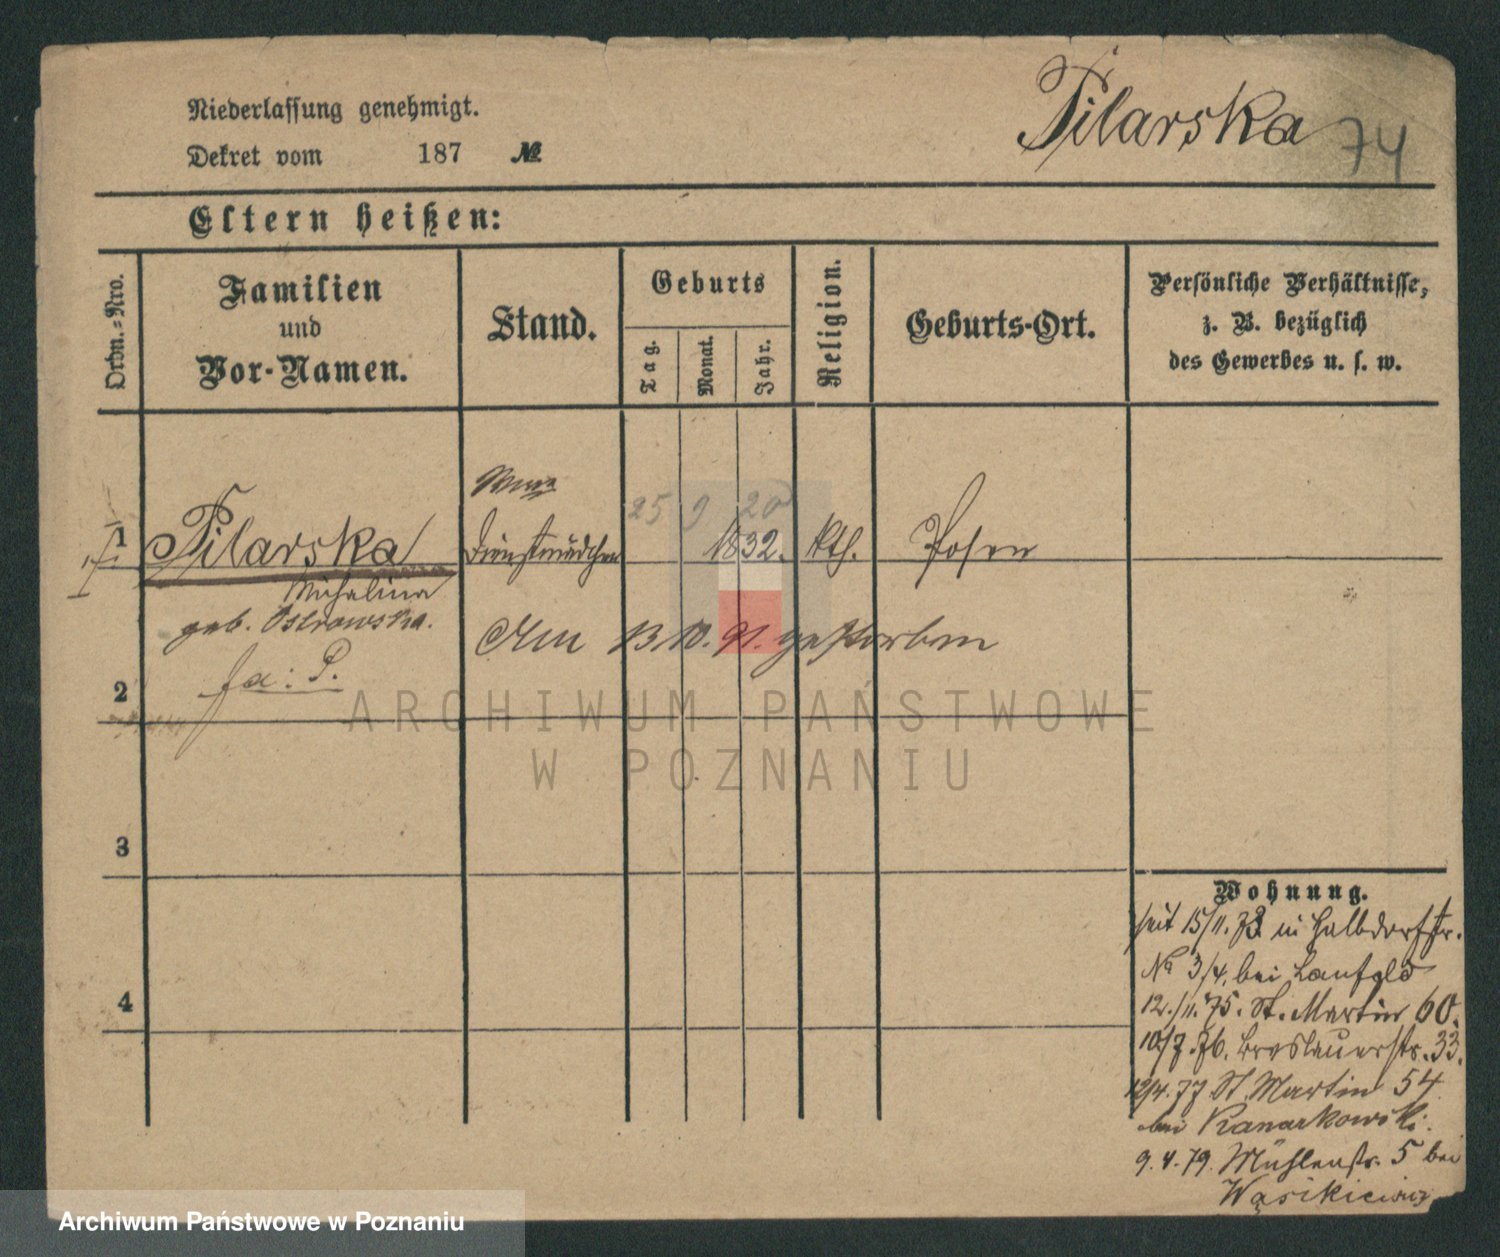 Niederlassung genehmigt.
Pilarska 74
Dekret vom 187 №
Eltern heißen:
Ordn.-Nro.
Familien
und
Vor-Namen.
Stand.
Geburts
Tag.
Monat.
Jahr.
Religion.
Geburts-Ort.
Persönliche Verhältnisse,
z. B. bezüglich
des Gewerbes u. s. w.
25 9 20
1 Pilarska Dienstmädchen 1832. kth. Posen
Michalina
geb. Ostrowska.
Am 13.10.91. gestorben
fa: P.
2
ARCHIWUM PAŃSTWOWE
W POZNANIU
3
Wohnung.
seit 15/11. 73 in Halbdorfstr.
No 3/4, bei
4
12./11. 75. St. Martin 60.
10/7. 76. Breslauerstr. 33.
12/4. 77 St. Martin 54
bei Kanarkowski.
9. 4. 79. Mühlenstr. 5 bei
Wąsikiewicz
Archiwum Państwowe w Poznaniu